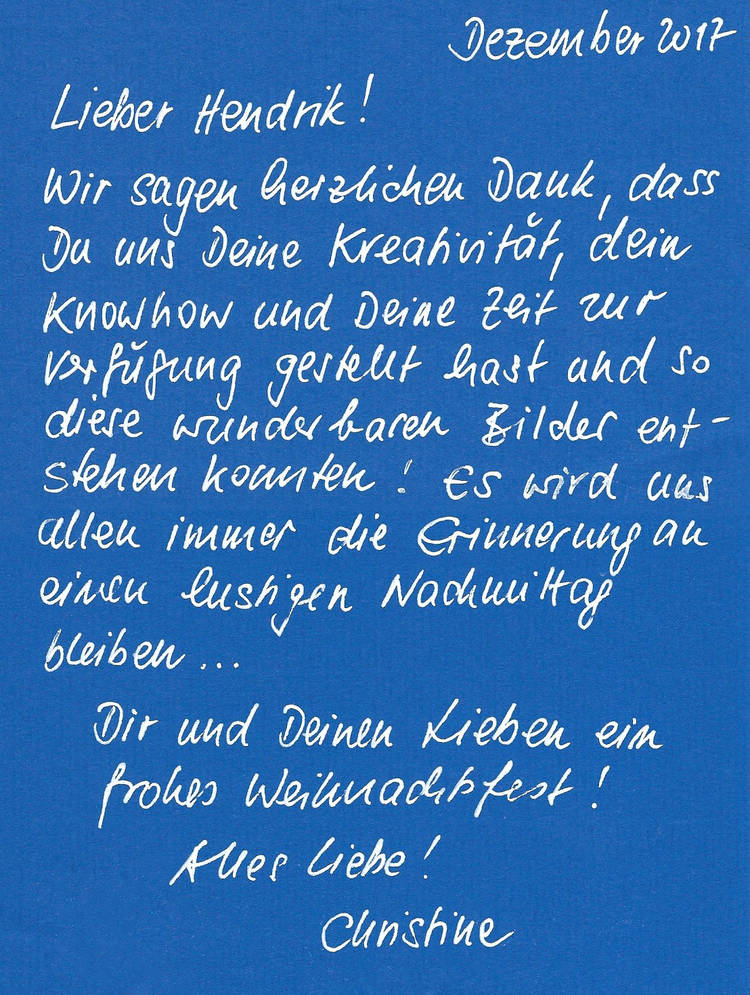 Dezember 2017
Lieber Hendrik!
Wir sagen herzlichen Dank, dass
Du uns Deine Kreativität, dein
Knowhow und Deine Zeit zur
Verfügung gestellt hast und so
diese wunderbaren Bilder ent-
stehen konnten! Es wird uns
allen immer die Erinnerung an
einen lustigen Nachmittag
bleiben...
Dir und Deinen Lieben ein
frohes Weihnachtsfest!
Alles Liebe!
Christine